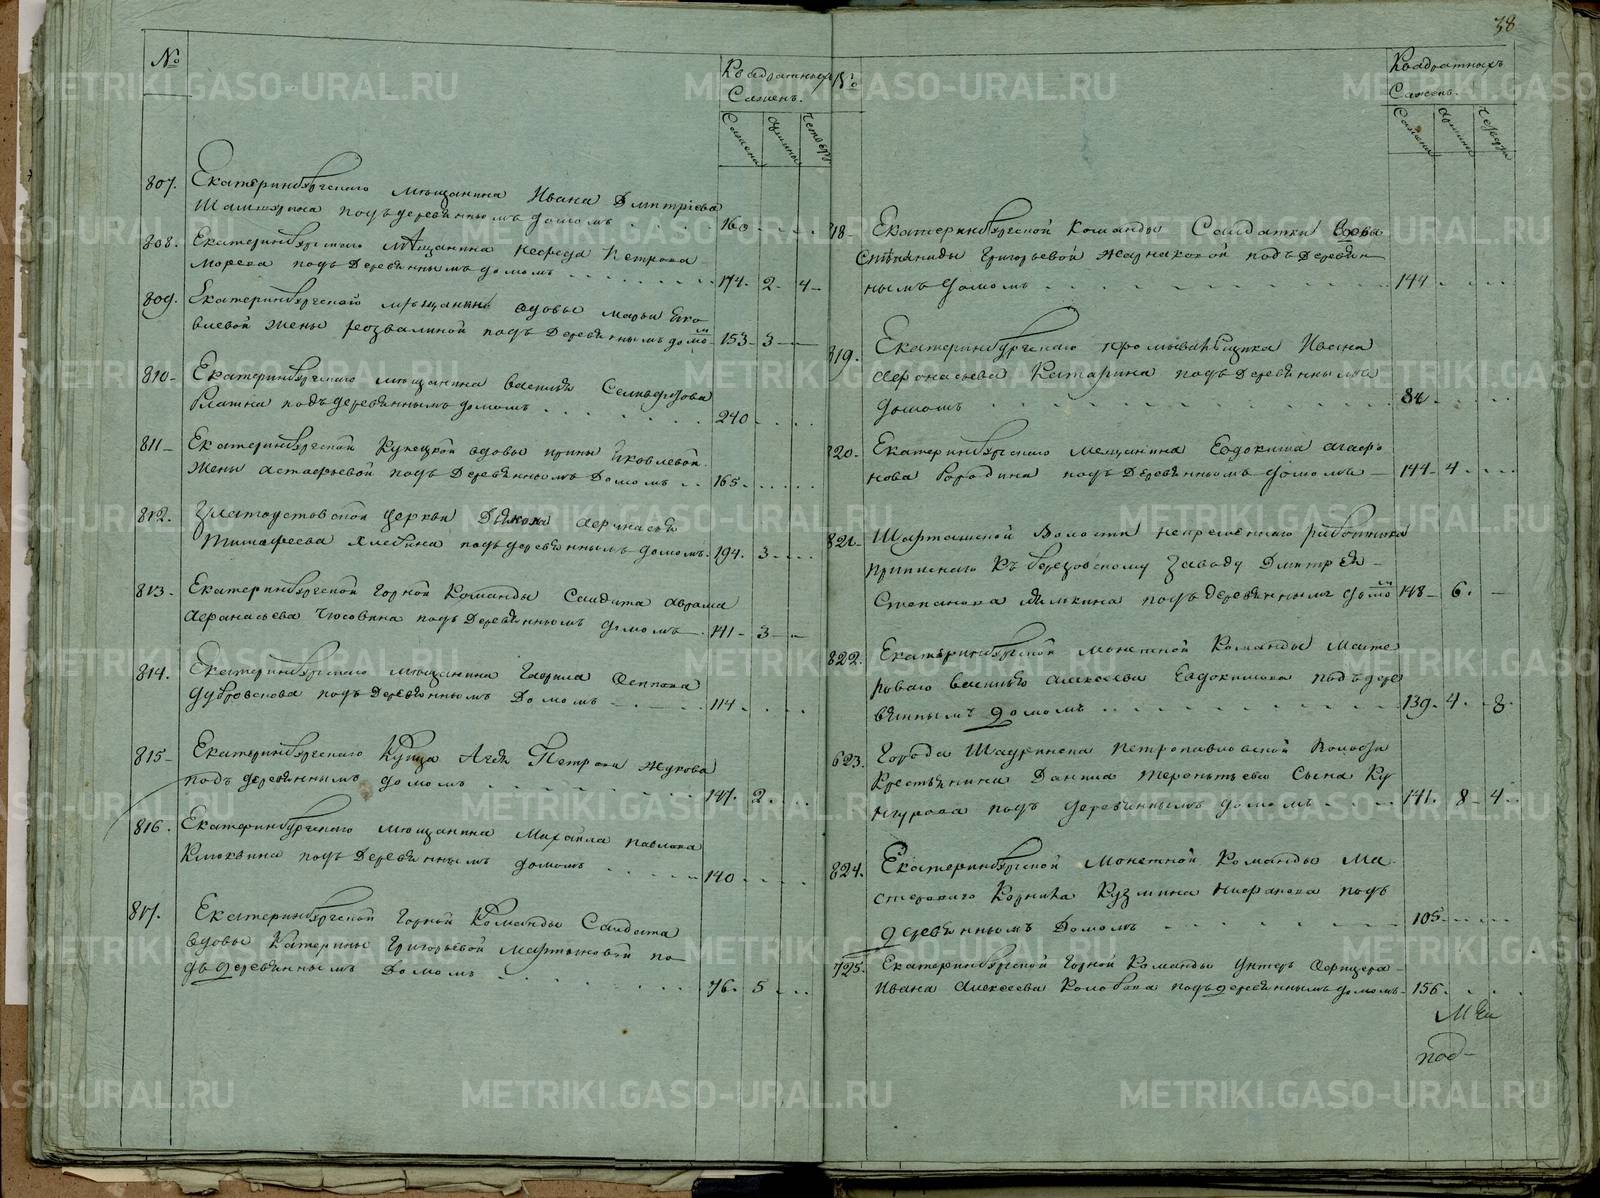 №
Квадратныхъ
Сажень.
Сажени
аршины
четверти
807. Екатеринбургскаго мѣщанина Ивана Дмитріева
подъ деревяннымъ домомъ 160
808. Екатеринбургскаго мѣщанина Петрова
подъ деревяннымъ домомъ 174. 2. 4
809. Екатеринбургской мѣщанки вдовы Марьи Яко
влевой жены подъ деревяннымъ домомъ 153 3
810 Екатеринбургскаго мѣщанина Василья
подъ деревяннымъ домомъ 240
811 Екатеринбургской Купецкой вдовы Ирины Яковлевой
жены Астафьевой подъ деревяннымъ домомъ 165
812. Златоустовской церкви Дьякона Афонасья
Тимофеева Хлебина подъ деревяннымъ домомъ 194. 3
813 Екатеринбургской Горной Команды Солдата Аврама
Афанасьева Чусовина подъ деревяннымъ домомъ 141 3
814. Екатеринбургскаго мѣщанина Гаврила Осипова
Дубровскова подъ деревяннымъ домомъ 114
815 Екатеринбургскаго Купца Петрова Жукова
подъ деревяннымъ домомъ 147. 2
816. Екатеринбургскаго мѣщанина Михайла Павлова
Клюквина подъ деревяннымъ домомъ 140
817. Екатеринбургской Горной Команды Солдата
вдовы Катерины Григорьевой Мартыновой по
дъ деревяннымъ домомъ 76. 5
38
№
Квадратныхъ
Сажень.
Сажени
аршины
четверти
818 Екатеринбургской Команды Солдатки вдовы
Степаниды Григорьевой Жарнаковой подъ деревян
нымъ домомъ 144
819. Екатеринбургскаго промывальщика Ивана
Афонасьева Катарина подъ деревяннымъ
домомъ 84
820. Екатеринбургскаго мещанина Евдокима Агафо
нова Бородина подъ деревяннымъ домомъ 144 4
821 Шарташской Волости непременнаго работника
приписнаго къ березовскому заводу Дмитрея
Степанова подъ деревяннымъ домомъ 148 6
822. Екатеринбургской монетной Команды Масте
роваго Василья Алексеева Евдокимова подъ дере
вяннымъ домомъ 139. 4 8
623. Города Шадринска Петропавловской Волости
Крестьянина Данила Терентьева Сына Ку
нгурова подъ деревяннымъ домомъ 141. 8 4
824. Екатеринбургской монетной Команды Ма
стероваго Корнила Кузмина Нифанова подъ
деревяннымъ домомъ 105
725. Екатеринбургской Горной Команды Унтеръ Офицера
Ивана Алексеева Колобова подъ деревяннымъ домомъ 156
под
METRIKI.GASO-URAL.RU